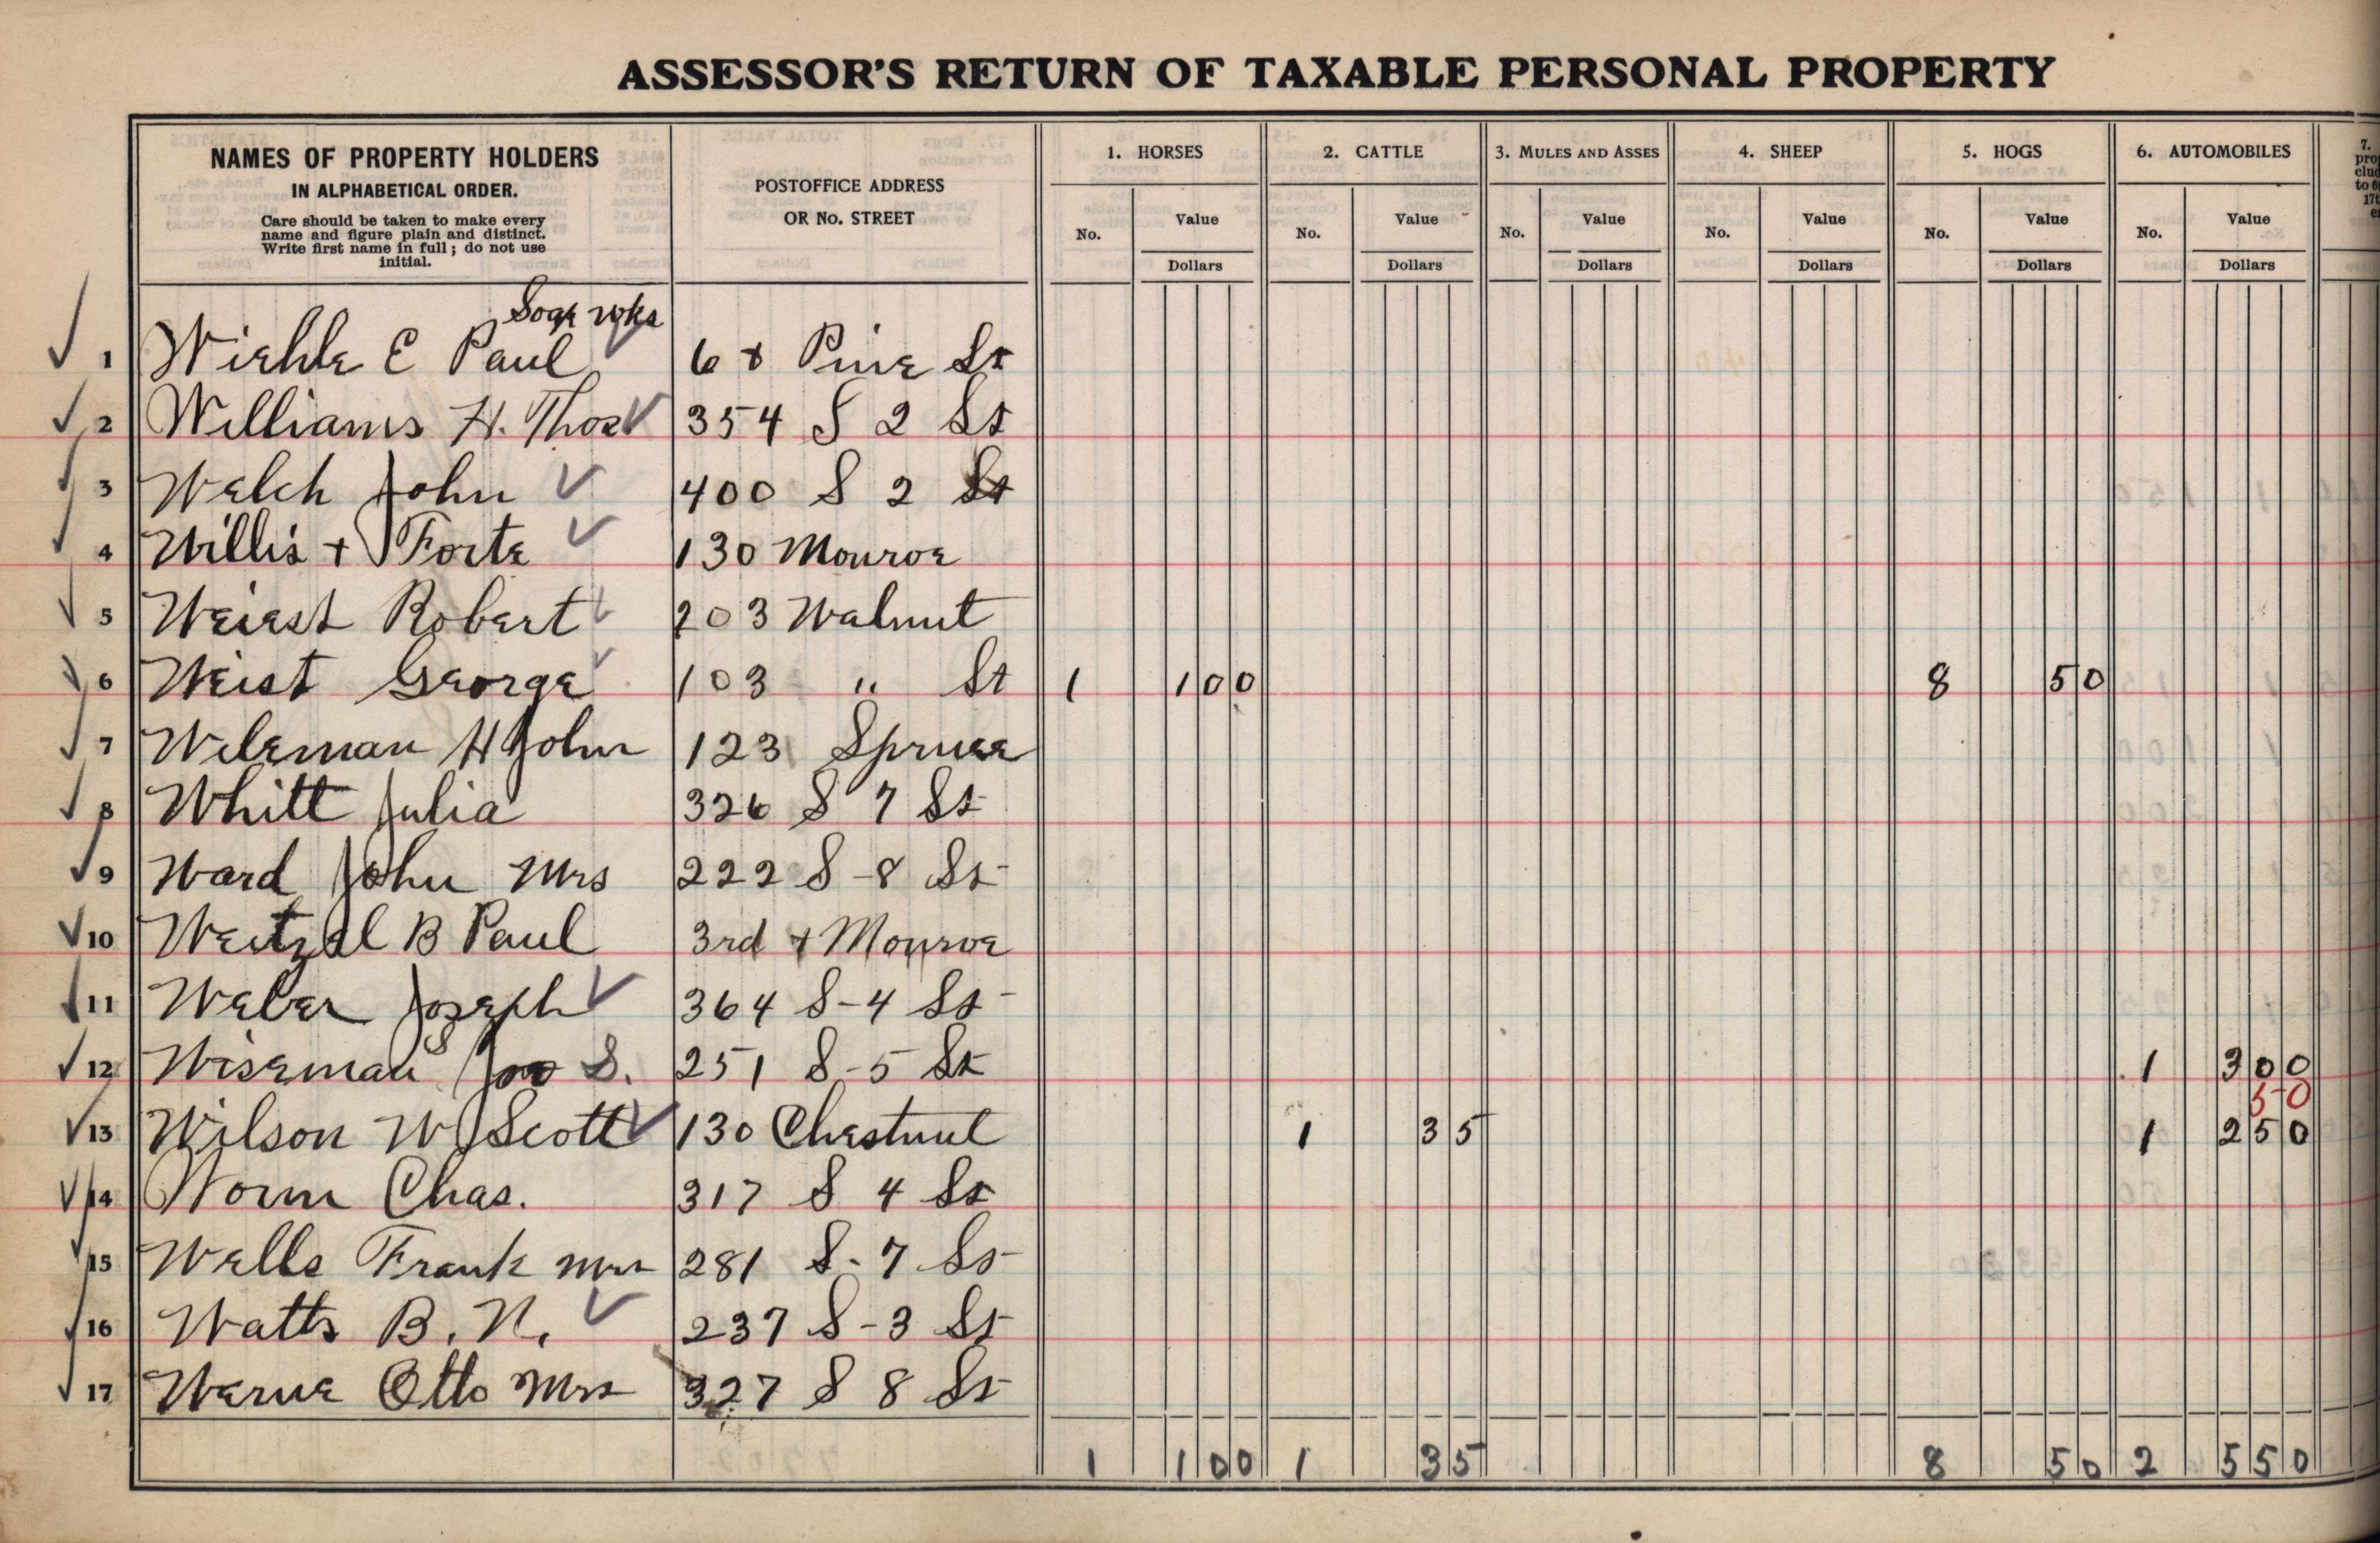 ASSESSOR'S RETURN OF TAXABLE PERSONAL PROPERTY
NAMES OF PROPERTY HOLDERS
IN ALPHABETICAL ORDER.
Care should be taken to make every
name and figure plain and distinct.
Write first name in full; do not use
initial.
POSTOFFICE ADDRESS
OR No. STREET
1. HORSES
No.
Value
Dollars
2. CATTLE
No.
Value
Dollars
3. MULES AND ASSES
No.
Value
Dollars
4. SHEEP
No.
Value
Dollars
5. HOGS
No.
Value
Dollars
6. AUTOMOBILES
No.
Value
Dollars
7.
Soap wks
1 Wiehle E Paul 6 + Pine St
2 Williams H. Thos 354 S 2 St
3 Welch John 400 S 2 St
4 Willis + Forte 130 Monroe
5 Weiest Robert 203 Walnut
6 Weist George 103 " St 1 100 8 50
7 Wileman H John 123 Spruce
8 Whitt Julia 326 S 7 St
9 Ward John Mrs 222 S-8 St
10 Weitzel B Paul 3rd + Monroe
11 Weber Joseph 364 S-4 St
12 Wiseman S. 251 S-5 St 1 300
50
13 Wilson W Scott 130 Chestnut 1 35 1 250
14 Worm Chas. 317 S 4 St
15 Wells Frank Mrs 281 S-7 St
16 Watts B. N. 237 S-3 St
17 Werne Otto Mrs 327 S 8 St
1 100 1 35 8 50 2 550